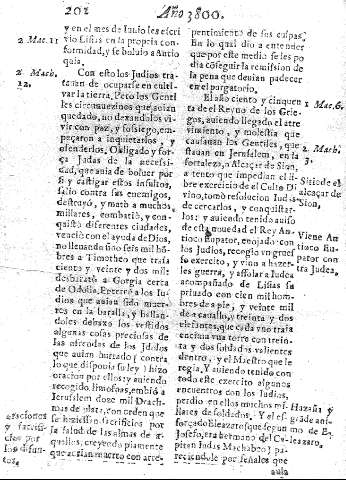 202
Año 3800.
2 Mac. 11
y en el mes de Iunio les escri
vio Lisias en la propria con
formidad, y se boluio a Antio
quia.
2 Mach.
12.
Con esto los Iudios tra-
tauan de ocuparse en culti-
var la tierra. Pero los Gentiles
circunvezinos que auian
quedado, no dexandolos vi-
vir con paz, y sosiego, em-
peçaron a inquietarlos, y
ofenderlos. Obligado y for-
ça Iudas de la necesi-
dad, que auia de boluer por
si y castigar estos insultos,
salio contra sus enemigos,
destruyó, y mató a muchos
millares, combatió, y con-
quistó diferentes ciudades,
venció con el ayuda de Dios,
no llenando sino seis mil hō-
bres a Timotheo que traia
ciento y veinte y dos mil
desbarató a Gorgia cerca
de Odolla. Enterró a los Iu-
dios que auian sido muer-
tos en la batalla, y hallan-
doles debaxo los vestidos
algunas cosas preciosas de
las ofrendas de los Idolos
que auian hurtado (contra
lo que disponia su ley) hizo
oracion por ellos, y auiendo
recogido limosnas, embió a
Ierusalem doze mil Drach-
mas de plata, con orden que
se hiziessen sacrificios por
la salud de las almas de a-
quellos, creyendo piamente
que auian muerto con arre-
oraciones
y sacrifi-
cios por
los difun-
tos.
pentimiento de sus culpas,
En lo qual dio a entender
que por este medio se les po
dia cōseguir la remission de
la pena que deuian padecer
en el purgatorio.
El año ciento y cinquen
ta del Reyno de los Grie-
gos, auiendo llegado el atre
vimiento, y molestia que
causauan los Gentiles, que
estauan en Ierusalem, en la
fortaleza, o Alcaçar de Sion,
a tento que impedian el li-
bre exercicio de el Culto Di
vino, tomó resolucion Iudas
de cercarlos, y conquistar-
los: y auiendo tenido auiso
de esta nouedad el Rey An-
tioco Eupator, enojado con
los Iudios, recogio vn grues
so exercito, y vino a hazer-
les guerra, y assolar a Iudea
acompañado de Lisias su
priuado con cien mil hom-
bres de a pie, y veinte mil
de a cauallo, y treinta y dos
elefantes, que cada vno traia
encima vna torre con trein-
ta y dos soldados valientes
dentro, y el Maestro que le
regia. Y auiendo tenido con
todo este exercito algunos
encuentros con los Iudios,
perdio en ellos muchos mi-
llares de soldados. Y el es-
forçado Eleazaro (que segun
Iosefo, era hermano del Ca-
pitan Iudas Machabeo) pa-
reciendole por señales que
auia
1 Mac. 6.
2 Mach.
3.
Sitio de el
alcaçar de
Sion,
Viene An
tioco Eu-
pator con
tra Iudea,
Hazaña y
grande ani-
mo de E-
leazaro.